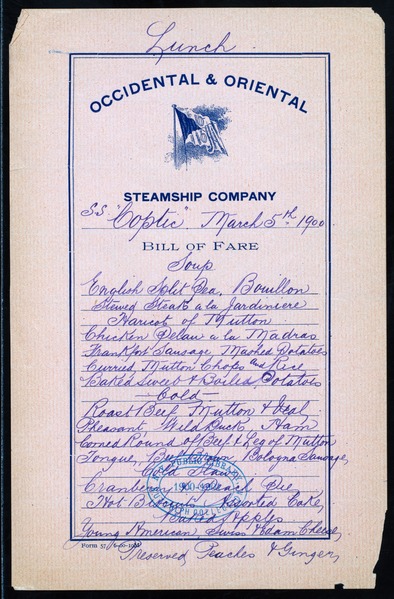 Lunch.
OCCIDENTAL & ORIENTAL
STEAMSHIP COMPANY
S.S. "Coptic" March 5th 1900
BILL OF FARE
Soup
English Split Pea, Bouillon
Stewed Steak a la Jardiniere
Haricot of Mutton
Chicken Pelau a la Madras
Frankfort Sausage Mashed Potatoes
Curried Mutton Chops and Rice
Baked Sweet & Boiled Potatoes
Cold
Roast Beef Mutton & Veal
Pheasant, Wild Duck, Ham
Corned Round of Beef & Leg of Mutton
Tongue, Bologna Sausage,
Cold Slaw
Cranberry Peach Pie
Hot Biscuits Assorted Cake,
Baked Apples
Young American, Swiss & Edam Cheese,
Form 57
Preserved Peaches & Ginger,